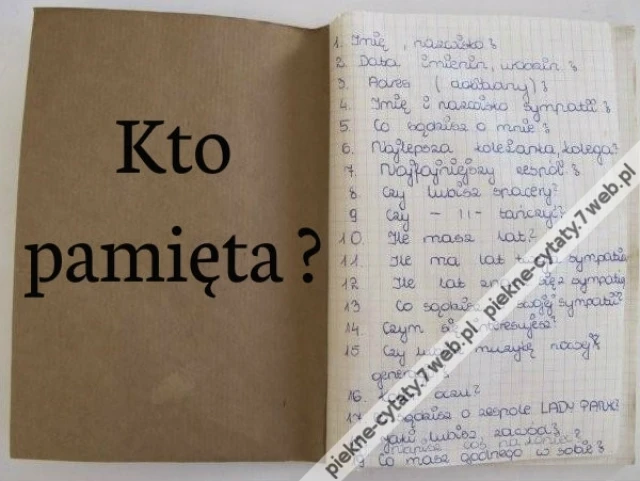 Kto
pamięta?
1. Imię, nazwisko?
2. Data imienin, urodzin?
3. Adres (dokładny)?
4. Imię i nazwisko sympatii?
5. Co sądzisz o mnie?
6. Najlepsza koleżanka, kolega?
7. Najfajniejszy zespół?
8. Czy lubisz spacery?
9. Czy - 11 - tańczyć?
10. Ile masz lat?
11. Ile ma lat sympatia
12. Ile lat sympatię
13. Co sądzisz swojej sympatii?
14. Czym się interesujesz?
15. Czy muzykę naszej
16. oczu?
17. sądzisz o zespole LADY PANK?
jaki lubisz zawód?
napisz coś na koniec?
19. Co masz godnego w sobie?
piekne-cytaty.7web.pl piekne-cytaty.7web.pl